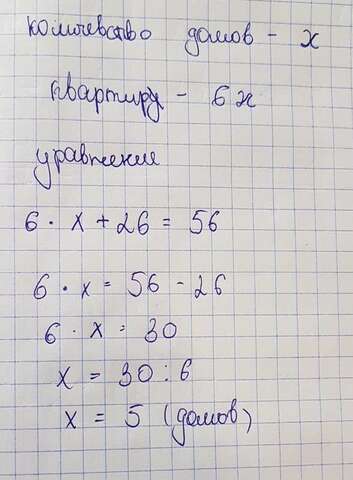 количевство домов - х
квартиру - 6х
уравнение
6 · х + 26 = 56
6 · х = 56 - 26
6 · х = 30
х = 30 : 6
х = 5 (домов)